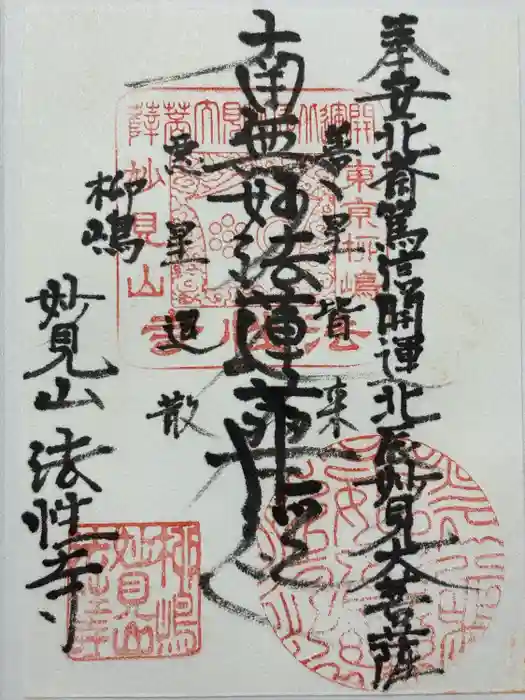 奉安北斎篤信開運北辰妙見大菩薩
善星皆来
南無妙法蓮華経
悪星退散
柳嶋
妙見山 法性寺
開運北辰妙見大菩薩
東京柳嶋
妙見山
法性寺
柳嶋
妙見山